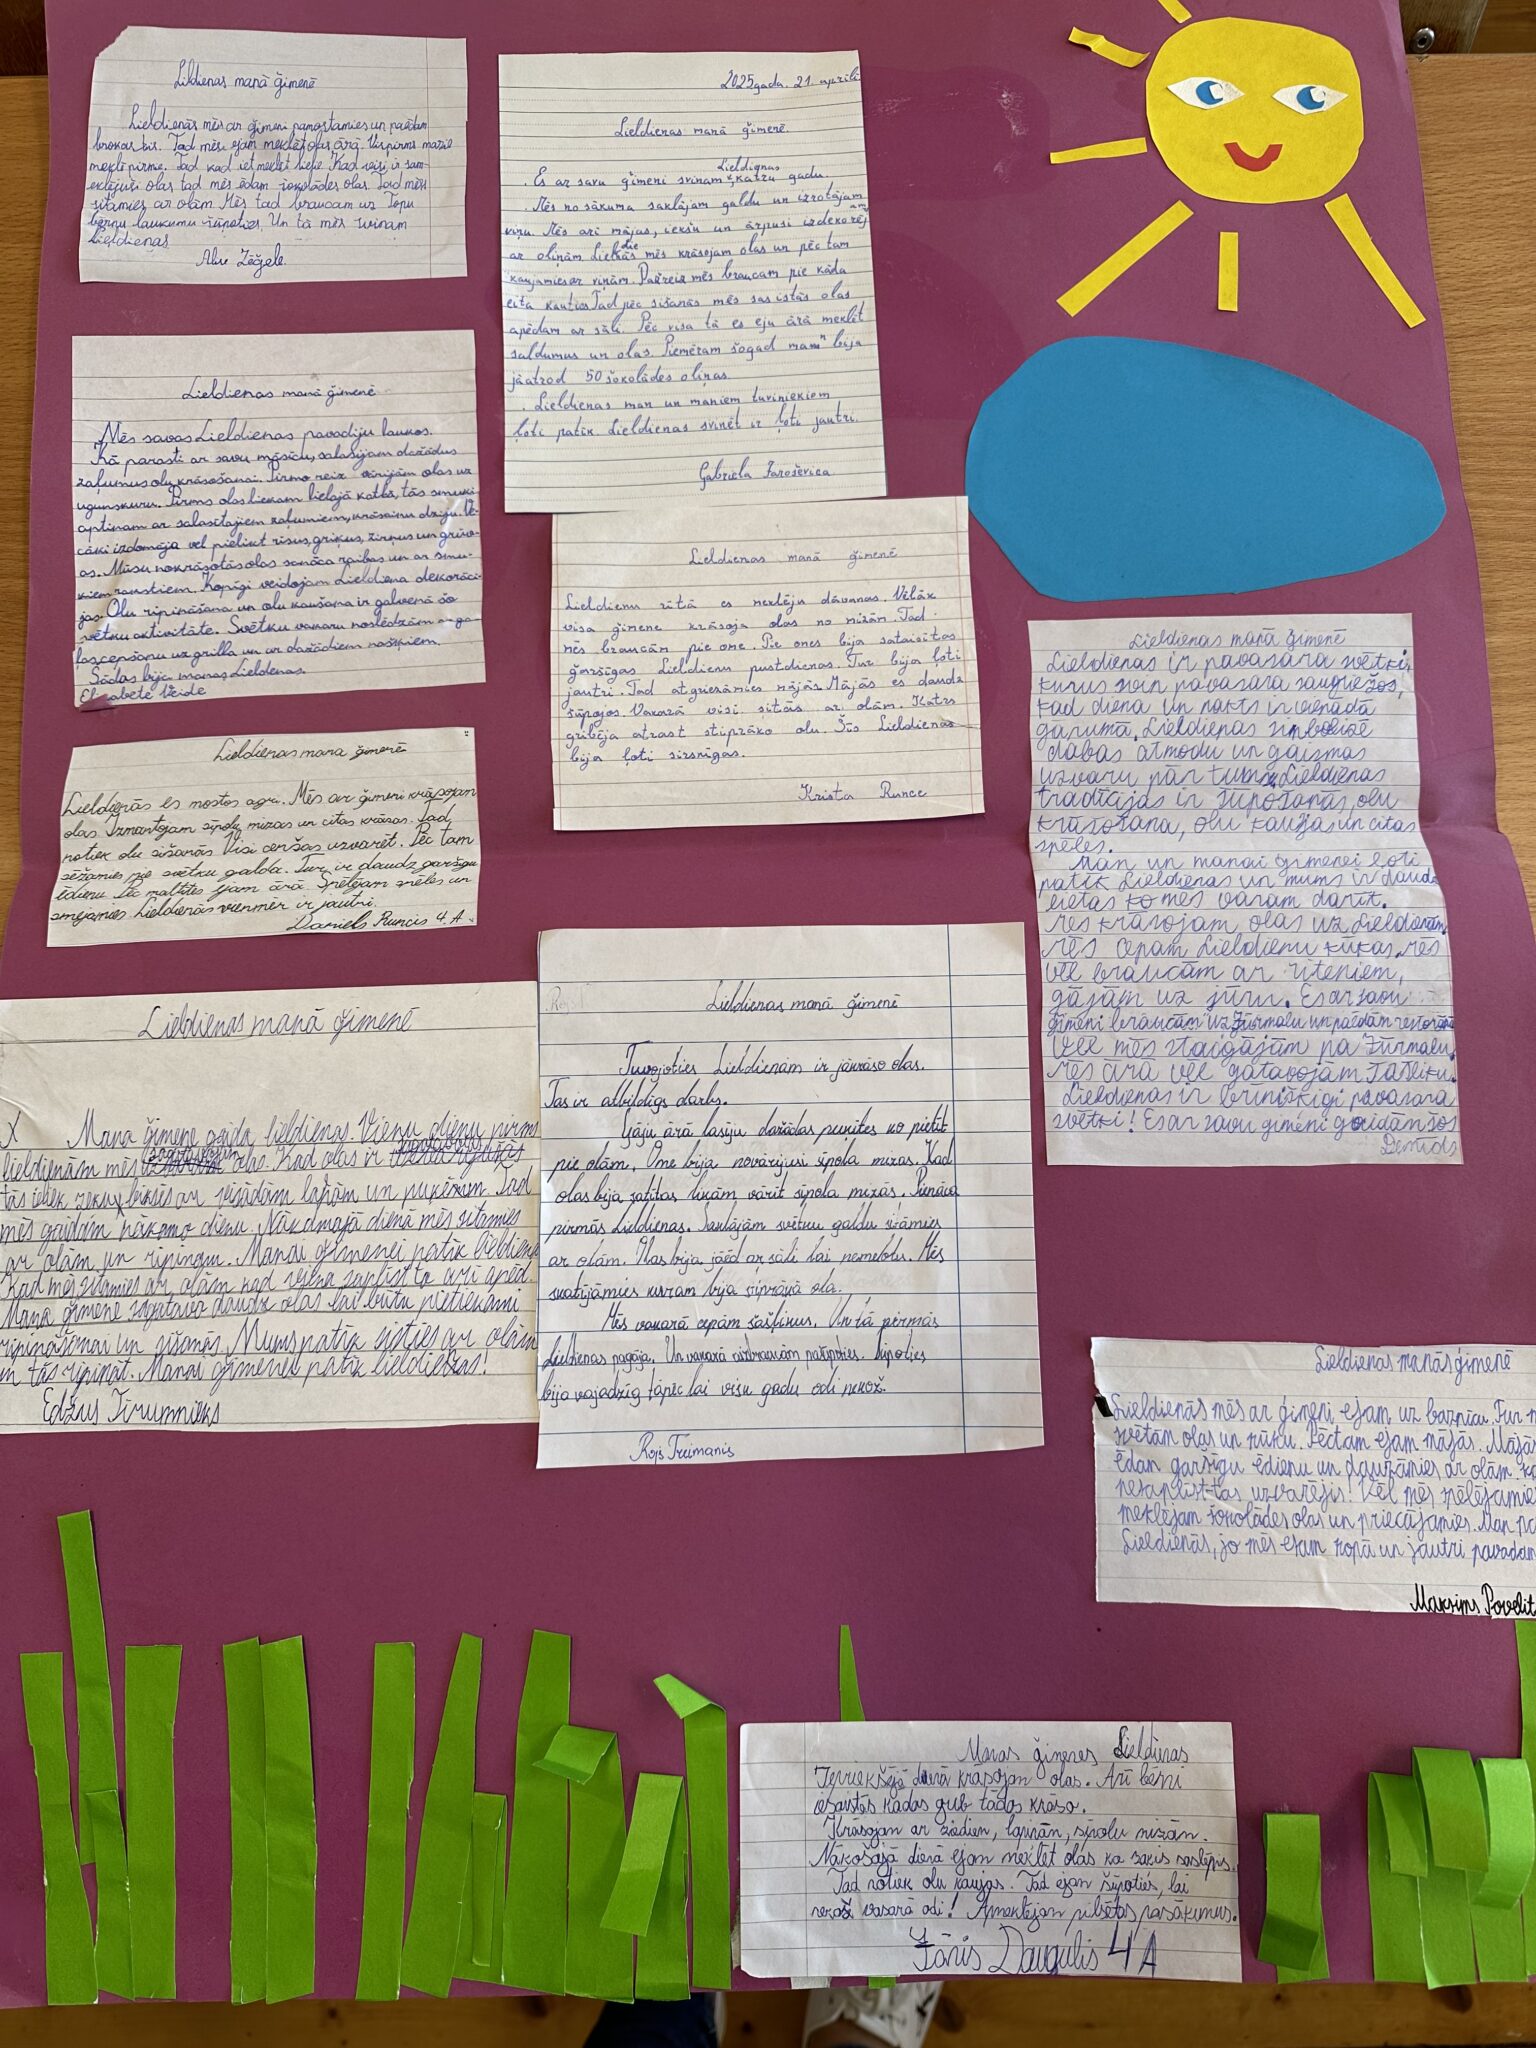 Lieldienas manā ģimenē
Lieldienās mēs ar ģimeni pamostamies un paēdam
brokastis. Tad mēs ejam meklēt olas ārā. Vispirms mazie
meklē pirmie. Tad kad iet meklēt lielie. Kad visi ir sam-
eklējuši olas tad mēs ēdam šokolādes olas. Tad mēs
sitamies ar olām. Mēs tad braucam uz Topu
bērnu laukumu šūpoties. Un tā mēs svinam
Lieldienas
2025 gada. 21. aprīlī
Lieldienas manā ģimenē.
Lieldienas
Es ar savu ģimeni svinam katru gadu.
Mēs no sākuma saklājam galdu un izrotājam
viņu. Mēs arī mājas, iekšu un ārpusi izdekorēj
am
ar oliņām. Lieldienās mēs krāsojam olas un pēc tam
kaujamies ar viņām. Pašreiz mēs braucam pie kāda
cita kauties. Tad pēc sišanās mēs sasistās olas
apēdam ar sāli. Pēc visa tā es eju ārā meklēt
saldumus un olas. Piemēram šogad man bija
jāatrod 50 šokolādes oliņas
Lieldienas man un maniem tuviniekiem
ļoti patīk. Lieldienas svinēt ir ļoti jautri.
Gabriela Jaroševica
Lieldienas manā ģimenē
Mēs savas Lieldienas pavadīju laukos.
Kā parasti ar savu māsīcu, salasījam dažādus
zaļumus olu krāsošanai. Pirmo reiz vārījām olas uz
ugunskuru. Pirms olas liekam lielajā katlā, tās smuki
aptinam ar salasītajiem zaļumiem, krāsainu dziju. Ve-
cāki izdomāja vēl pielikt rīsus, griķus, zirņus un grūbo-
as. Mūsu nokrāsotās olas sanāca raibas un ar smu-
kiem rakstiem. Kopīgi veidojam Lieldiena dekorāci-
jas. Olu ripināšana un olu kaušana ir galvenā šo
svētku aktivitāte. Svētku vakaru noslēdzām ar ga-
ļas cepšanu uz grilla un ar dažādiem našķiem.
Šādas bija manas Lieldienas.
Elizabete Veide
Lieldienas manā ģimenē
Lieldienu rītā es meklēju dāvanas. Vēlāk
visa ģimene krāsoja olas no mizām. Tad
mēs braucām pie ome. Pie omes bija sataisītas
garšīgas Lieldienu pusdienas. Tur bija ļoti
jautri. Tad atgriezāmies mājās. Mājās es daudz
šūpojos. Vakarā visi sitās ar olām. Katrs
gribēja atrast stiprāko olu. Šīs Lieldienas
bija ļoti sirsnīgas.
Krista Runce
Lieldienas mana ģimenē
Lieldienās es mostos agri. Mēs ar ģimeni krāsojam
olas. Izmantojam sīpolu mizas un citas krāsas. Tad
notiek olu sišanās. Visi cenšas uzvarēt. Pēc tam
sēžamies pie svētku galda. Tur ir daudz garšīgu
ēdienu. Pēc maltītes ejam ārā. Spēlējam spēles un
smejamies. Lieldienās vienmēr ir jautri.
Daniels Runcis 4.A
Lieldienas manā ģimenē
Lieldienas ir pavasara svētki,
kurus svin pavasara saulgriežos,
kad diena un nakts ir vienādā
garumā. Lieldienas simbolizē
dabas atmodu un gaismas
uzvaru pār tumsu. Lieldienas
tradīcijas ir šūpošanās, olu
krāsošana, olu kaujas un citas
spēles.
Man un manai ģimenei ļoti
patīk Lieldienas un mums ir daudz
lietas ko mēs varam darīt.
Mēs krāsojam olas uz Lieldienām
Mēs cepam Lieldienu kūkas, mēs
vēl braucām ar riteņiem,
gājām uz jūru. Es ar savu
ģimeni braucām uz Jūrmalu un paēdām restorānā
Vēl mēs staigājām pa Jūrmalu.
Mēs ārā vēl gatavojām šašliku.
Lieldienas ir brīnišķīgi pavasara
svētki! Es ar savu ģimeni gaidām šos
Lieldienas manā ģimenē
X Mana ģimene gaida lieldienas. Vienu dienu pirms
lieldienām mēs sagatavojam olas. Kad olas ir sagatavotas
tās ieliek zeķu biksēs ar dažādām lapām un puķēm. Tad
mēs gaidam nākamo dienu. Nākamajā dienā mēs sitamies
ar olām un ripinam. Manai ģimenei patīk lieldien
Kad mēs sitamies ar olām kad viena saplīst to arī apēd.
Mana ģimene sagatavo daudz olas lai būtu pietiekami
ripināšanai un sišanās. Mums patīk sisties ar olām
un tās ripināt. Manai ģimenei patīk lieldienas!
Edžus Tirumnieks
Lieldienas manā ģimenē
Tuvojoties Lieldienām ir jākrāso olas.
Tas ir atbildīgs darbs.
Gāju ārā lasīju dažādas puķītes ko pielikt
pie olām. Ome bija novārījusi sīpola mizas. Kad
olas bija satītas likām vārīt sīpola mizās. Pienāca
pirmās Lieldienas. Saklājām svētku galdu sitāmies
ar olām. Olas bija jāēd ar sāli lai nemelotu. Mēs
skatījāmies kuram bija stiprākā ola.
Mēs vakarā cepām šašlikus. Un tā pirmās
Lieldienas pagāja. Un vakarā aizbraucām pašūpoties. Šūpoties
bija vajadzīg tāpēc lai visu gadu odi nekož.
Rojs Treimanis
Lieldienas manās ģimenē
Lieldienās mēs ar ģimeni ejam uz baznīcu. Tur m
svētām olas un kūku. Pēctam ejam mājās. Mājās
ēdam garšīgu ēdienu un daužāmies ar olām. ka
nesaplīst-tas uzvarējis! Vēl mēs spēlējamies
meklējam šokolādes olas un priecājamies. Man pa
Lieldienās, jo mēs esam kopā un jautri pavadam
Maksims Povelit
Manas ģimenes Lieldienas
Iepriekšējā dienā krāsojam olas. Arī bērni
iesaistās kādas grib tādas krāso.
Krāsojam ar ziediem, lapiņām, sīpolu mizām.
Nākošajā dienā ejam meklēt olas ko zaķis saslēpis.
Tad notiek olu kaujas. Tad ejam šūpoties, lai
nekož vasarā odi! Apmeklējam pilsētas pasākumus.
Jānis Daugulis 4A